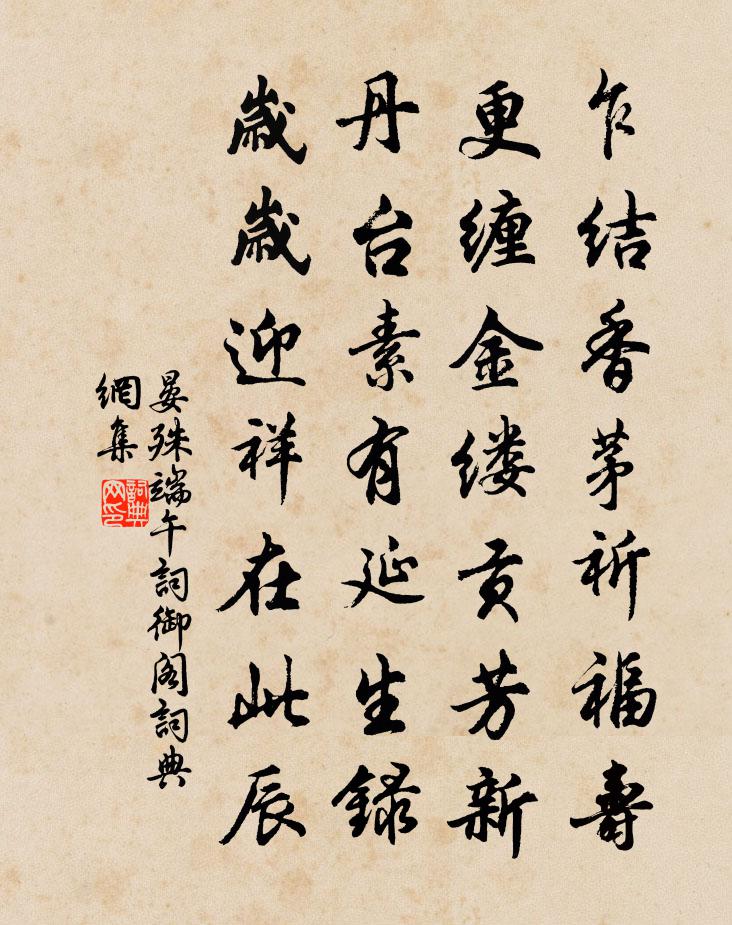 乍结香茅祈福壽
更缠金缕贡芳新
丹台素有延生録
歲歲迎祥在此辰
晏殊端午詞御阁詞典
網集
詞典
网印